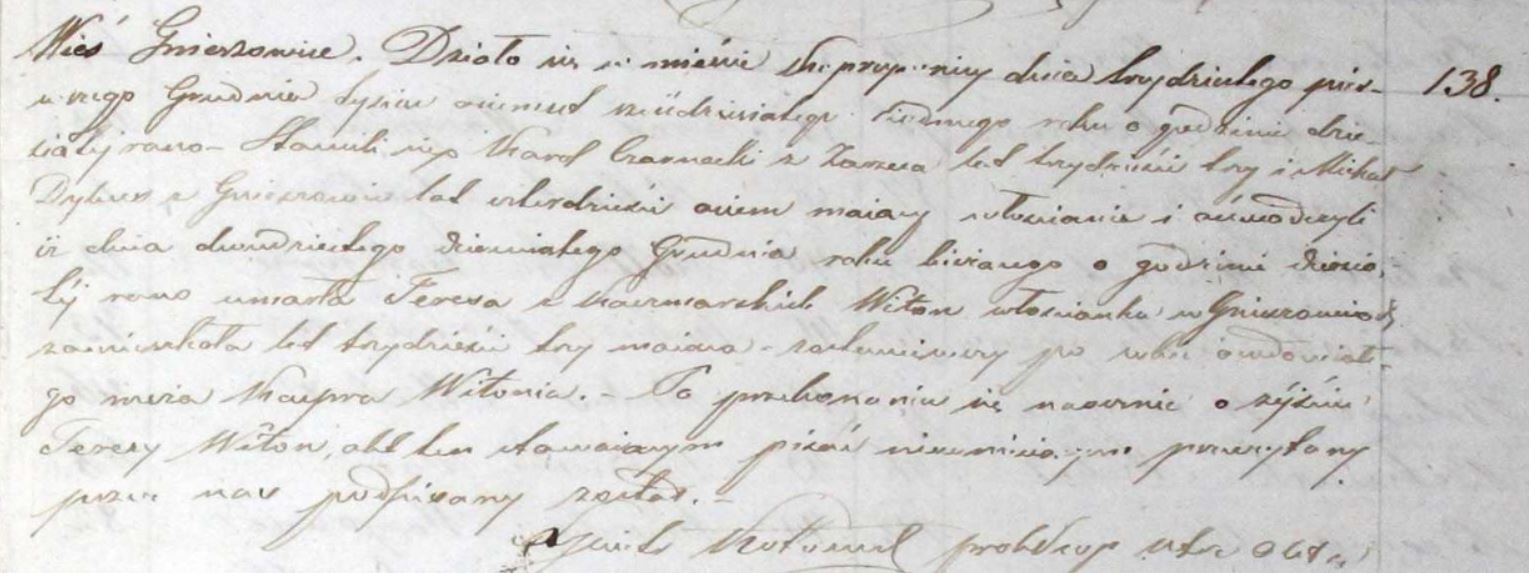 Wieś Gnieszowice. Działo się w mieście Koprzywnicy dnia trzydziestego pier-
138.
wszego Grudnia tysiąc ośmset sześćdziesiątego siódmego roku o godzinie dzie-
siątéj rano – Stawili się Karol Czarnecki z Zarzecza lat trzydzieści trzy i Michał
z Gnieszowic lat czterdzieści ośm mający włościanie i oświadczyli
iż dnia dwudziestego dziewiątego Grudnia roku bieżącego o godzinie dziesią-
téj rano umarła Teresa z Kaczmarskich Witoń włościanka w Gnieszowicach
zamieszkała lat trzydzieści trzy mająca – zostawiwszy po sobie owdowiałe-
go męża Kacpra Witonia. – Po przekonaniu się naocznie o zejściu
Teresy Witoń, akt ten stawaiącym pisać nieumieiącym przeczytany
przez nas podpisany został. –
proboszcz